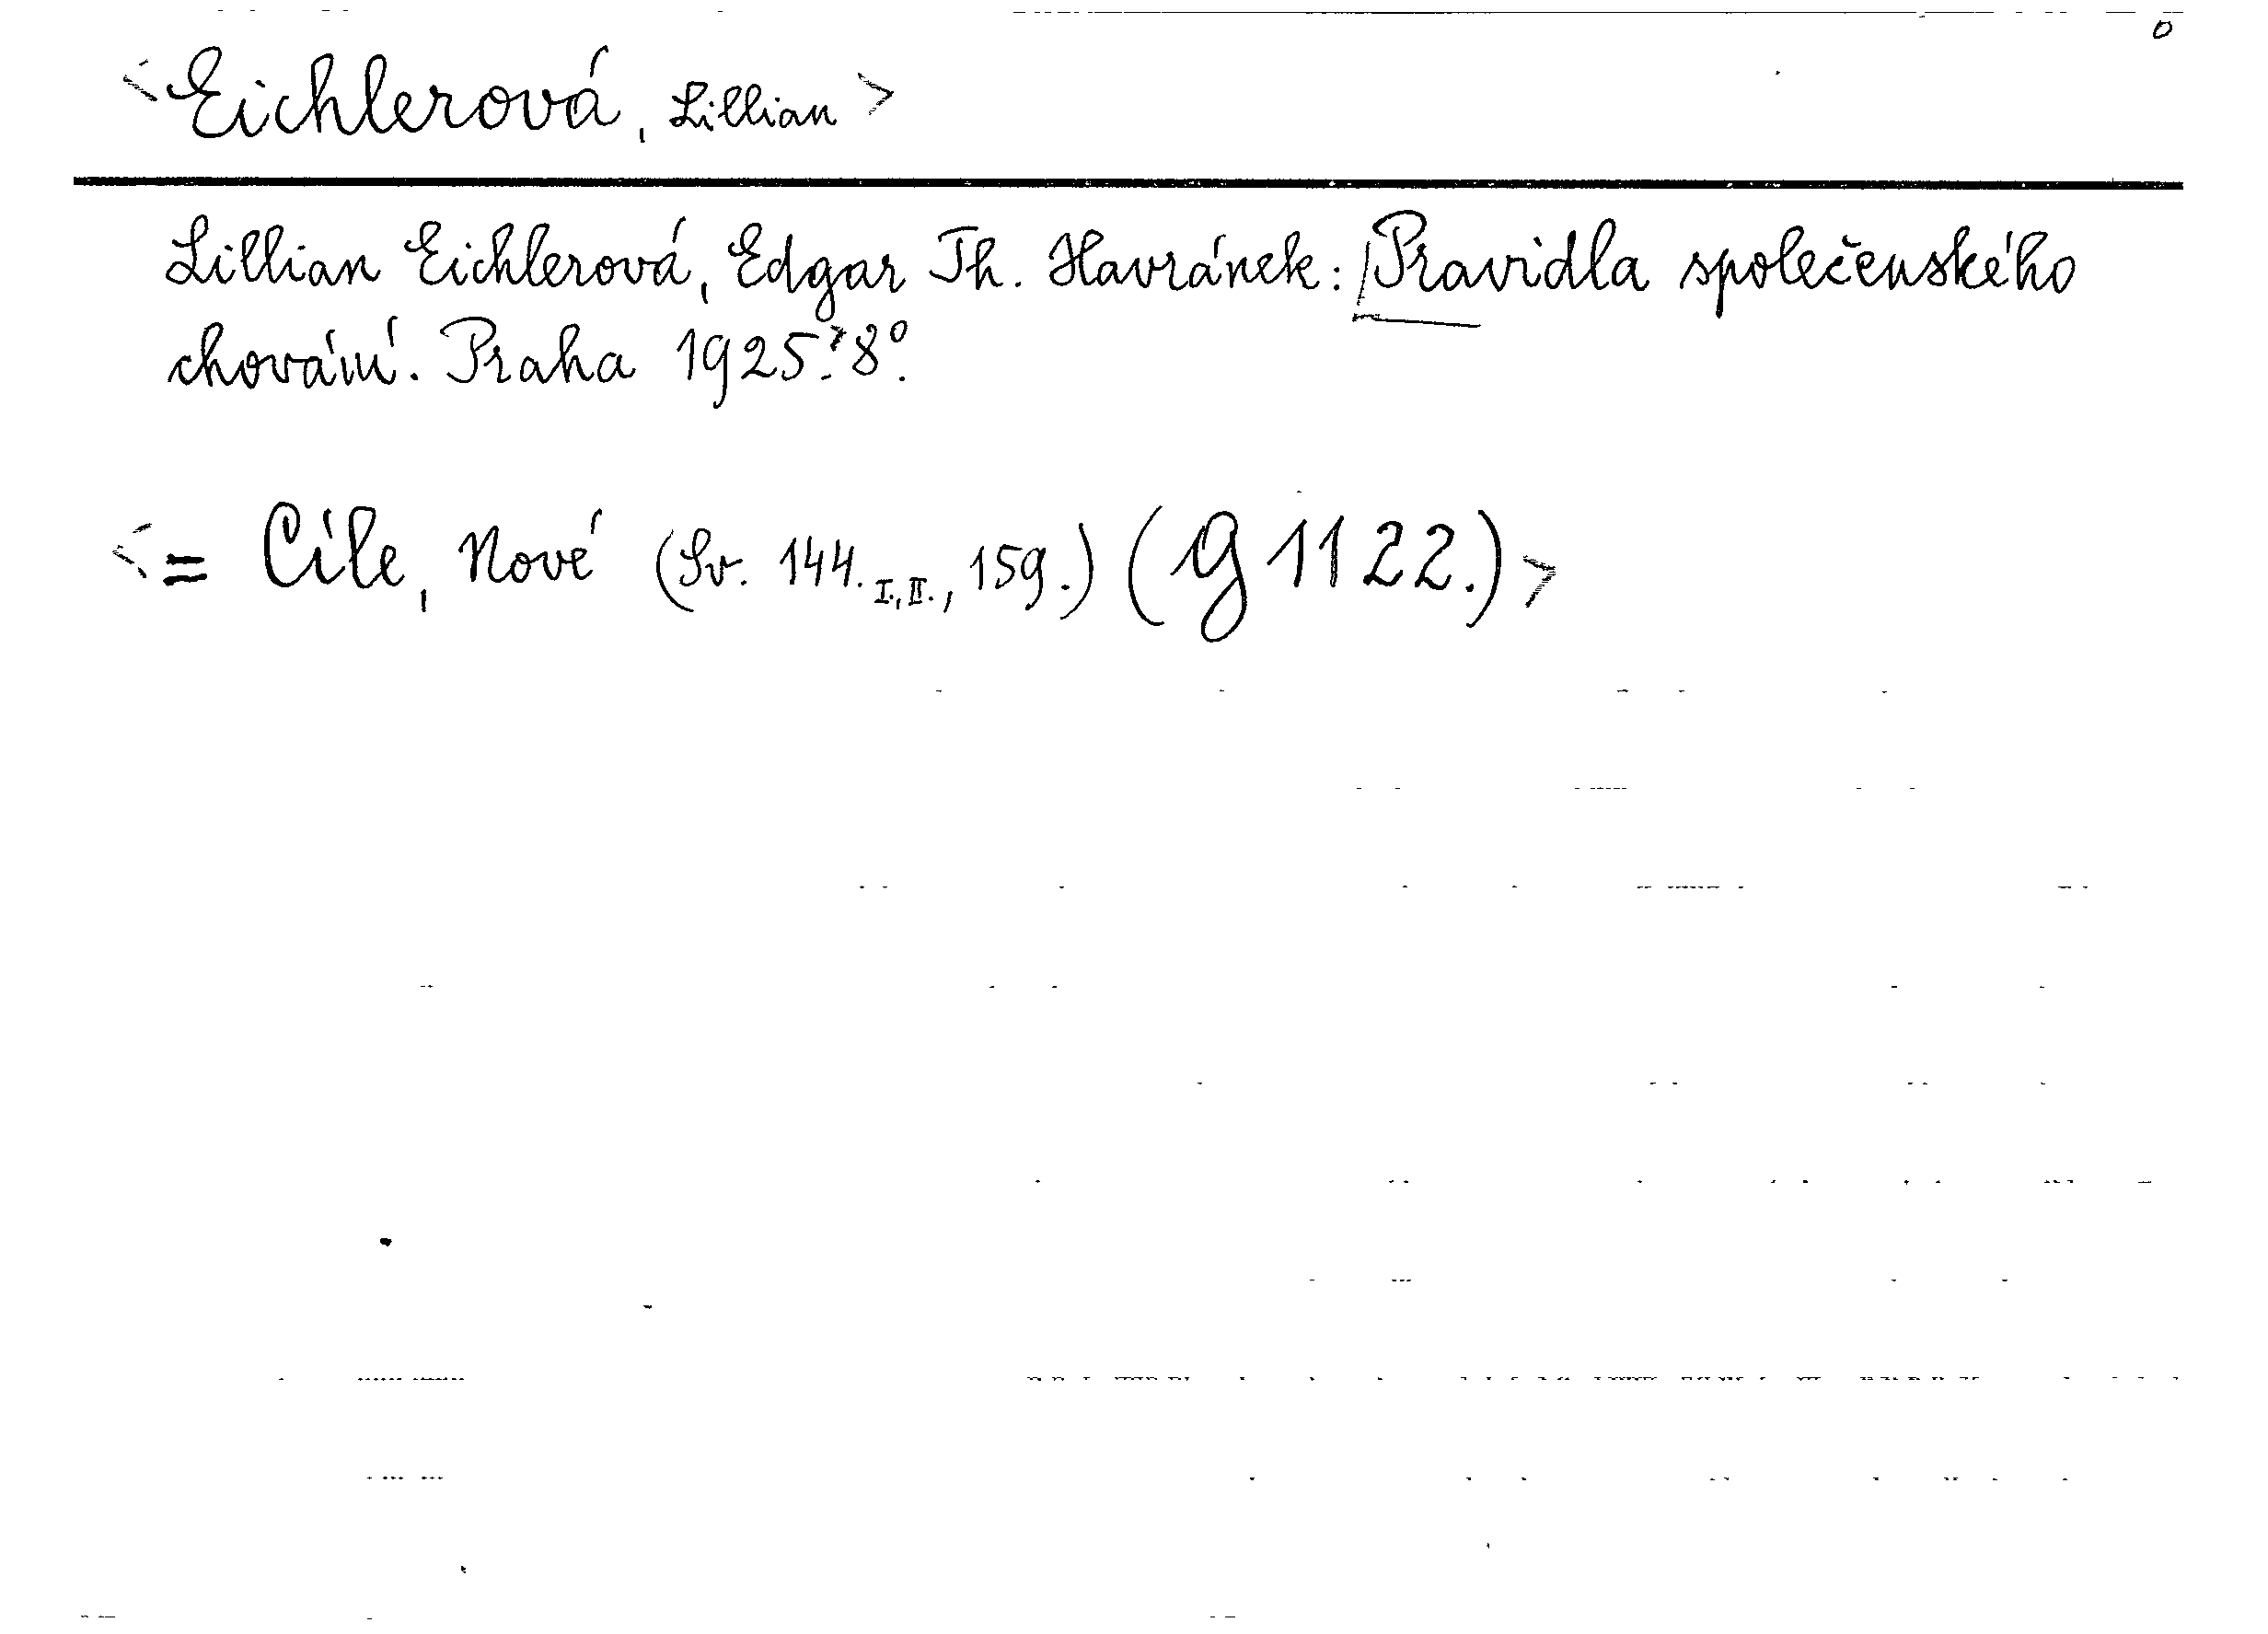 o
<Eichlerová, Lillian>
Lillian Eichlerová, Edgar Th. Havránek: Pravidla společenského
chování. Praha 1925.? 8°.
<= Cíle, Nové (Sv. 144. I., II., 159.) (G 1122.)>